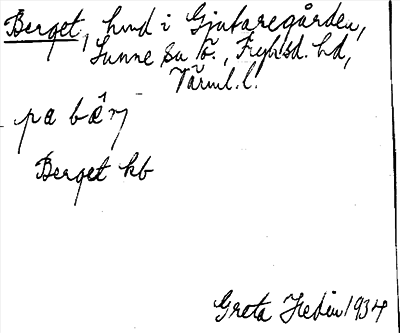 Berget, hmd i Gjutaregården,
Sunne sn ö., Fryksd. hd,
Värml. l.
pa bærj
Berget kb
Greta Hedin 1934